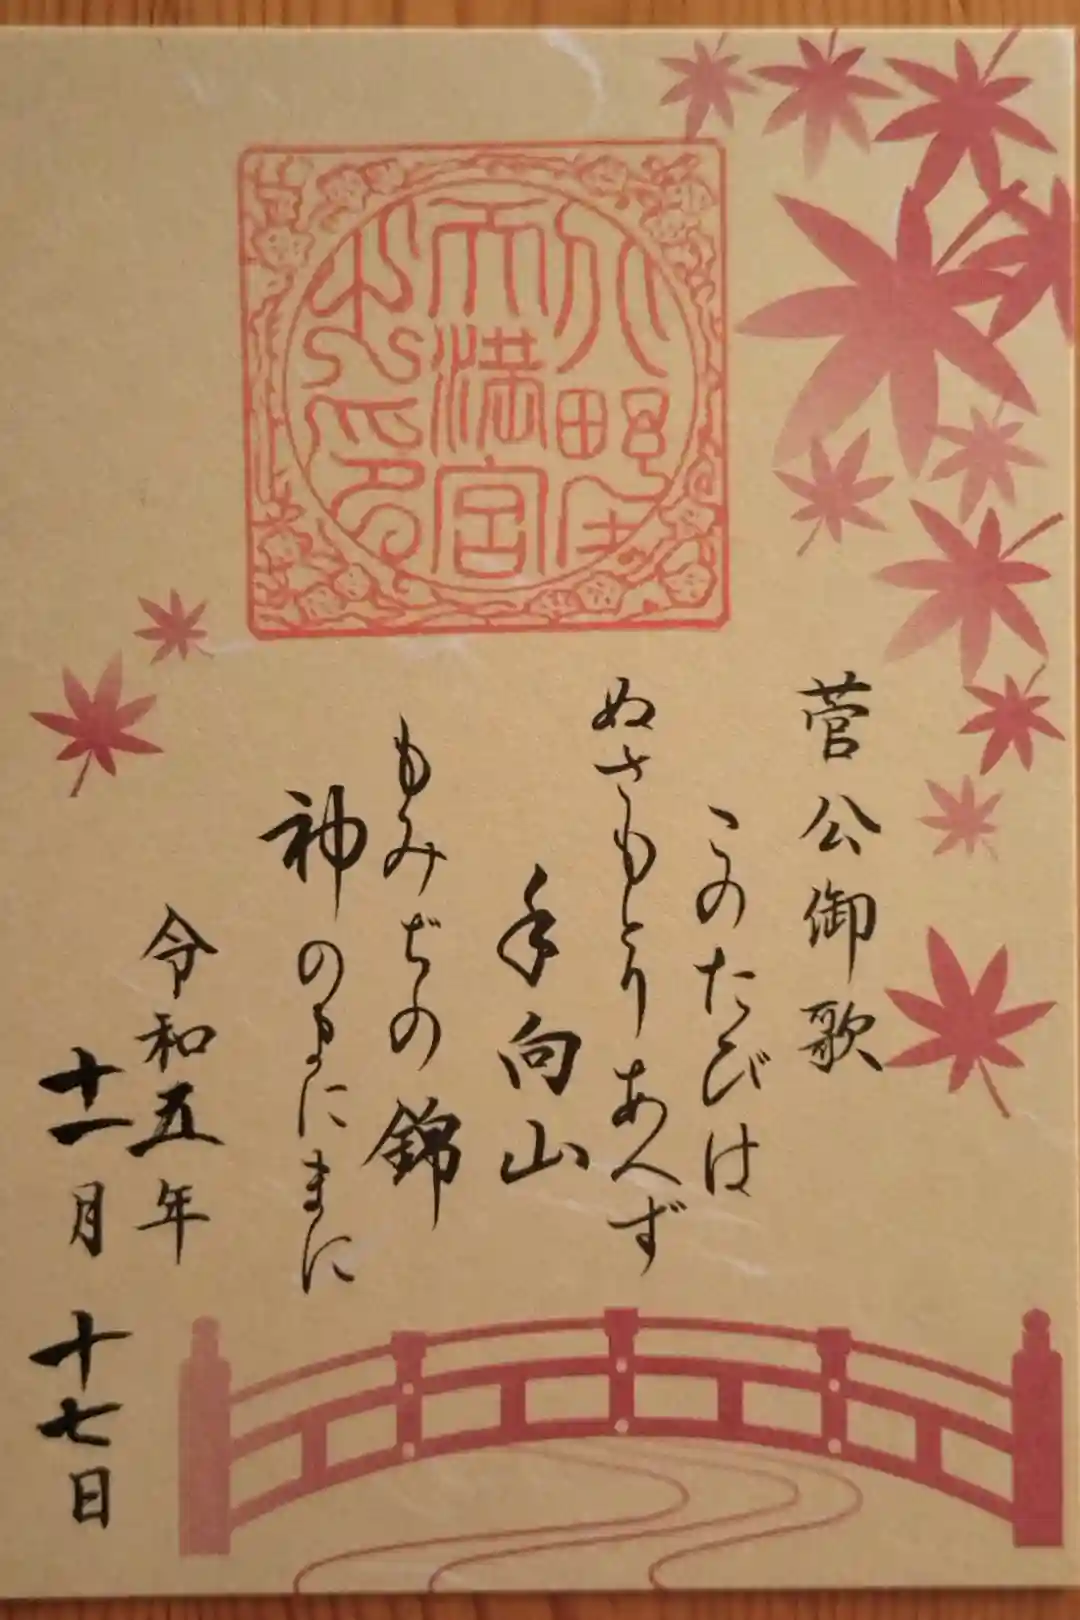 天満宮
菅公御歌
このたびは
ぬさもとりあへず
手向山
もみぢの錦
神のまにまに
令和五年
十一月十七日